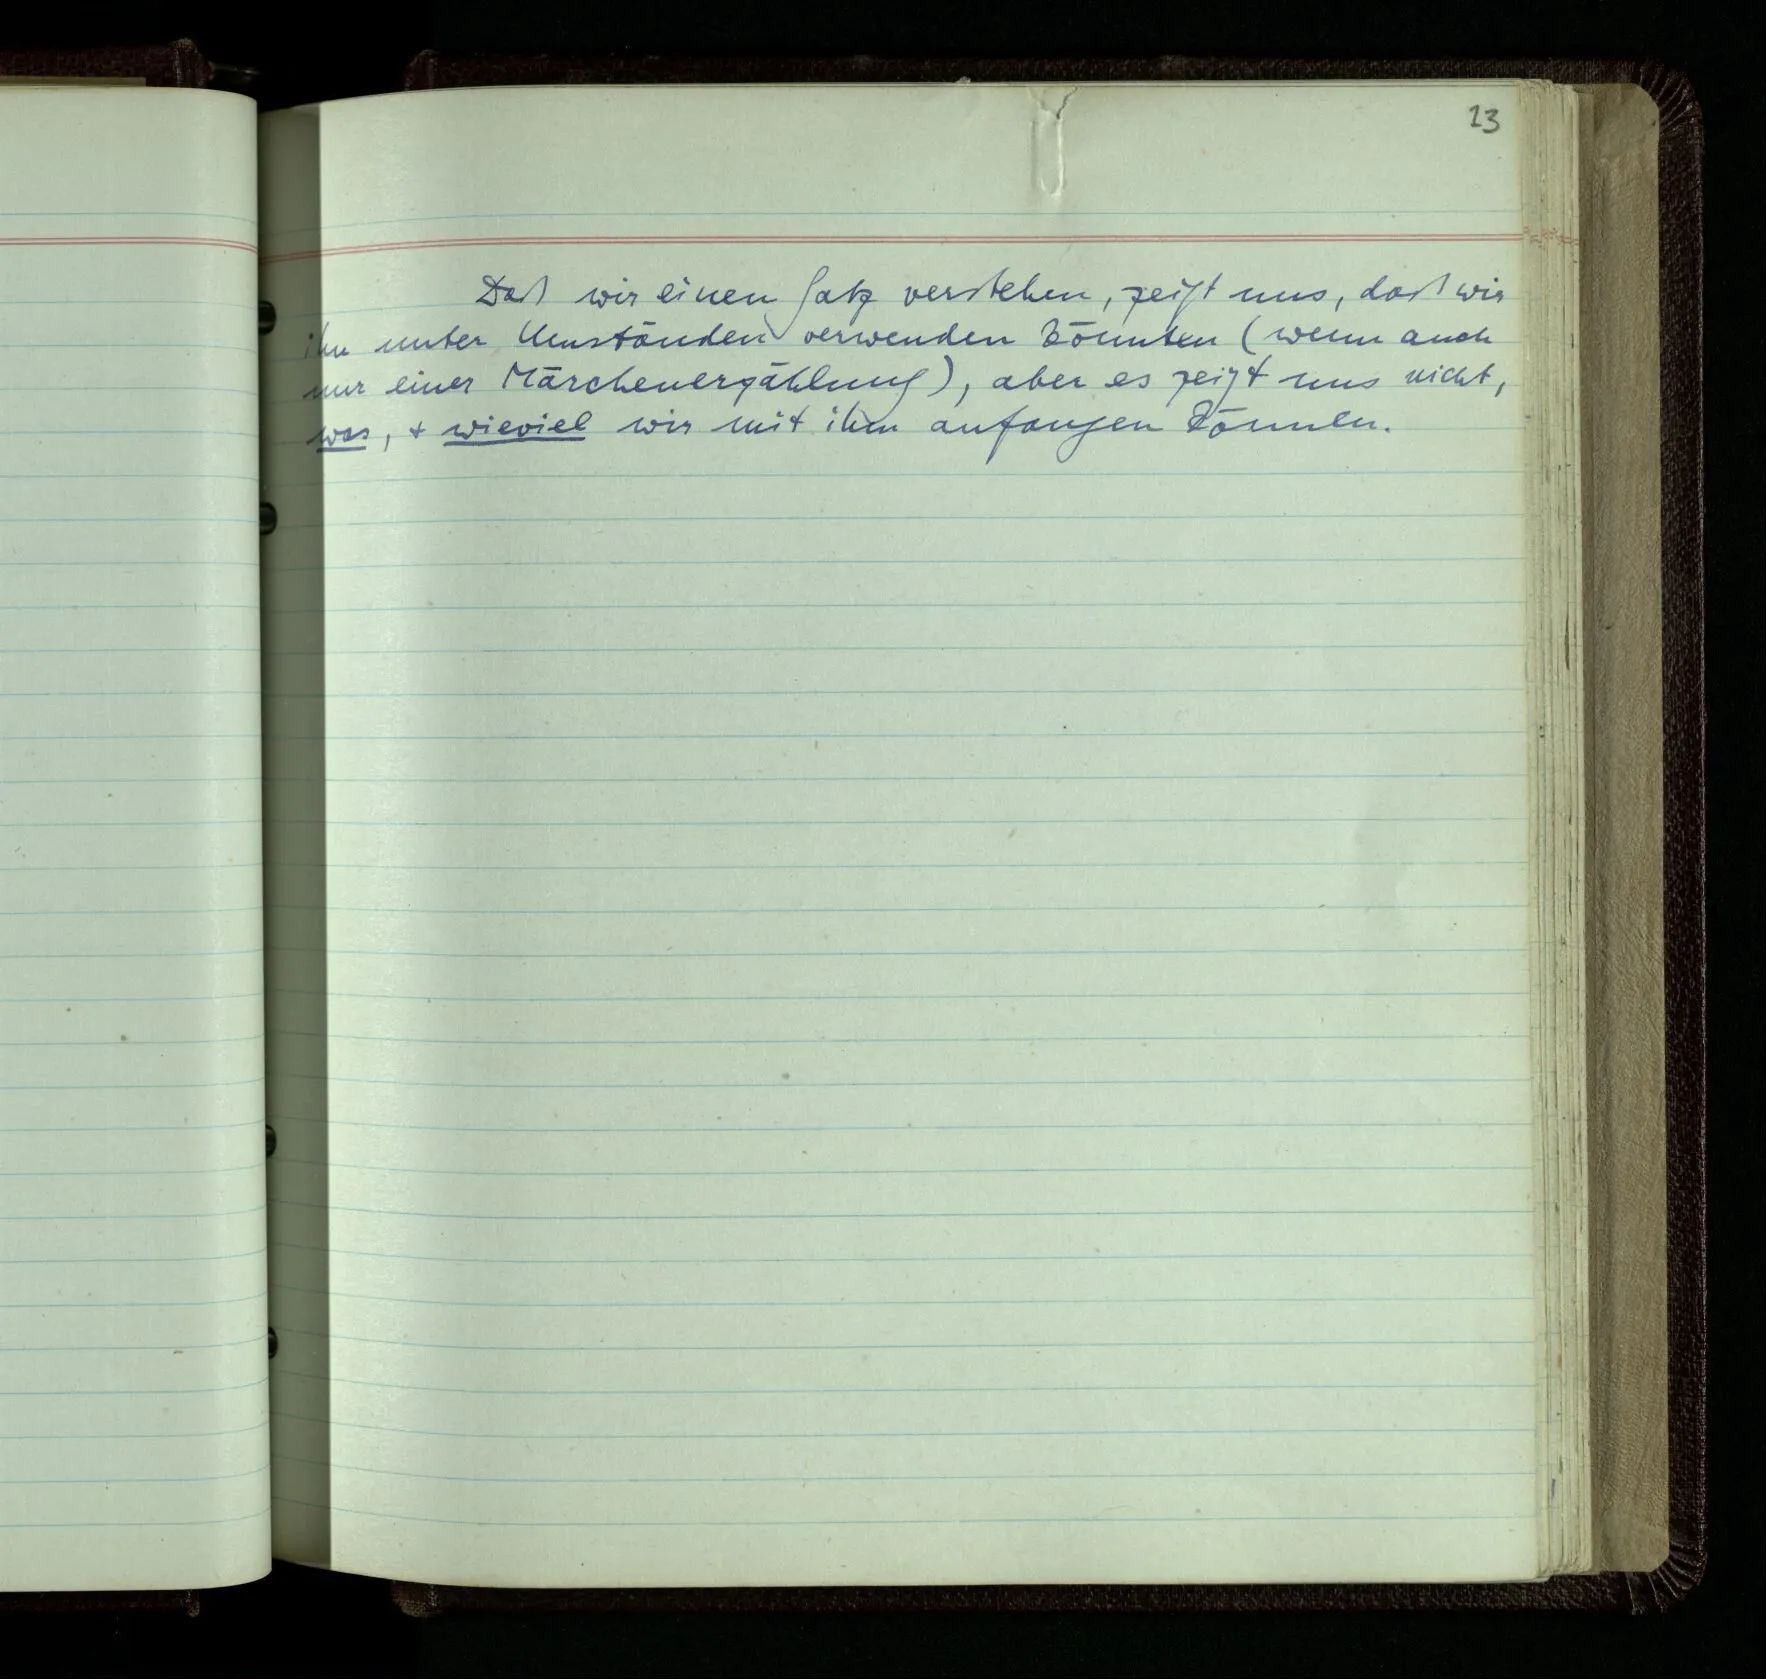 23
Daß wir einen Satz verstehen, zeigt uns, daß wir
ihn unter Umständen verwenden könnten (wenn auch
nur einer Märchenerzählung), aber es zeigt uns nicht,
was, + wieviel wir mit ihm anfangen können.